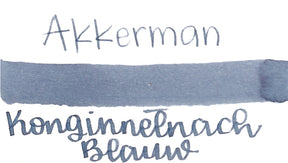 Akkerman
Konginnelnach
Blauw